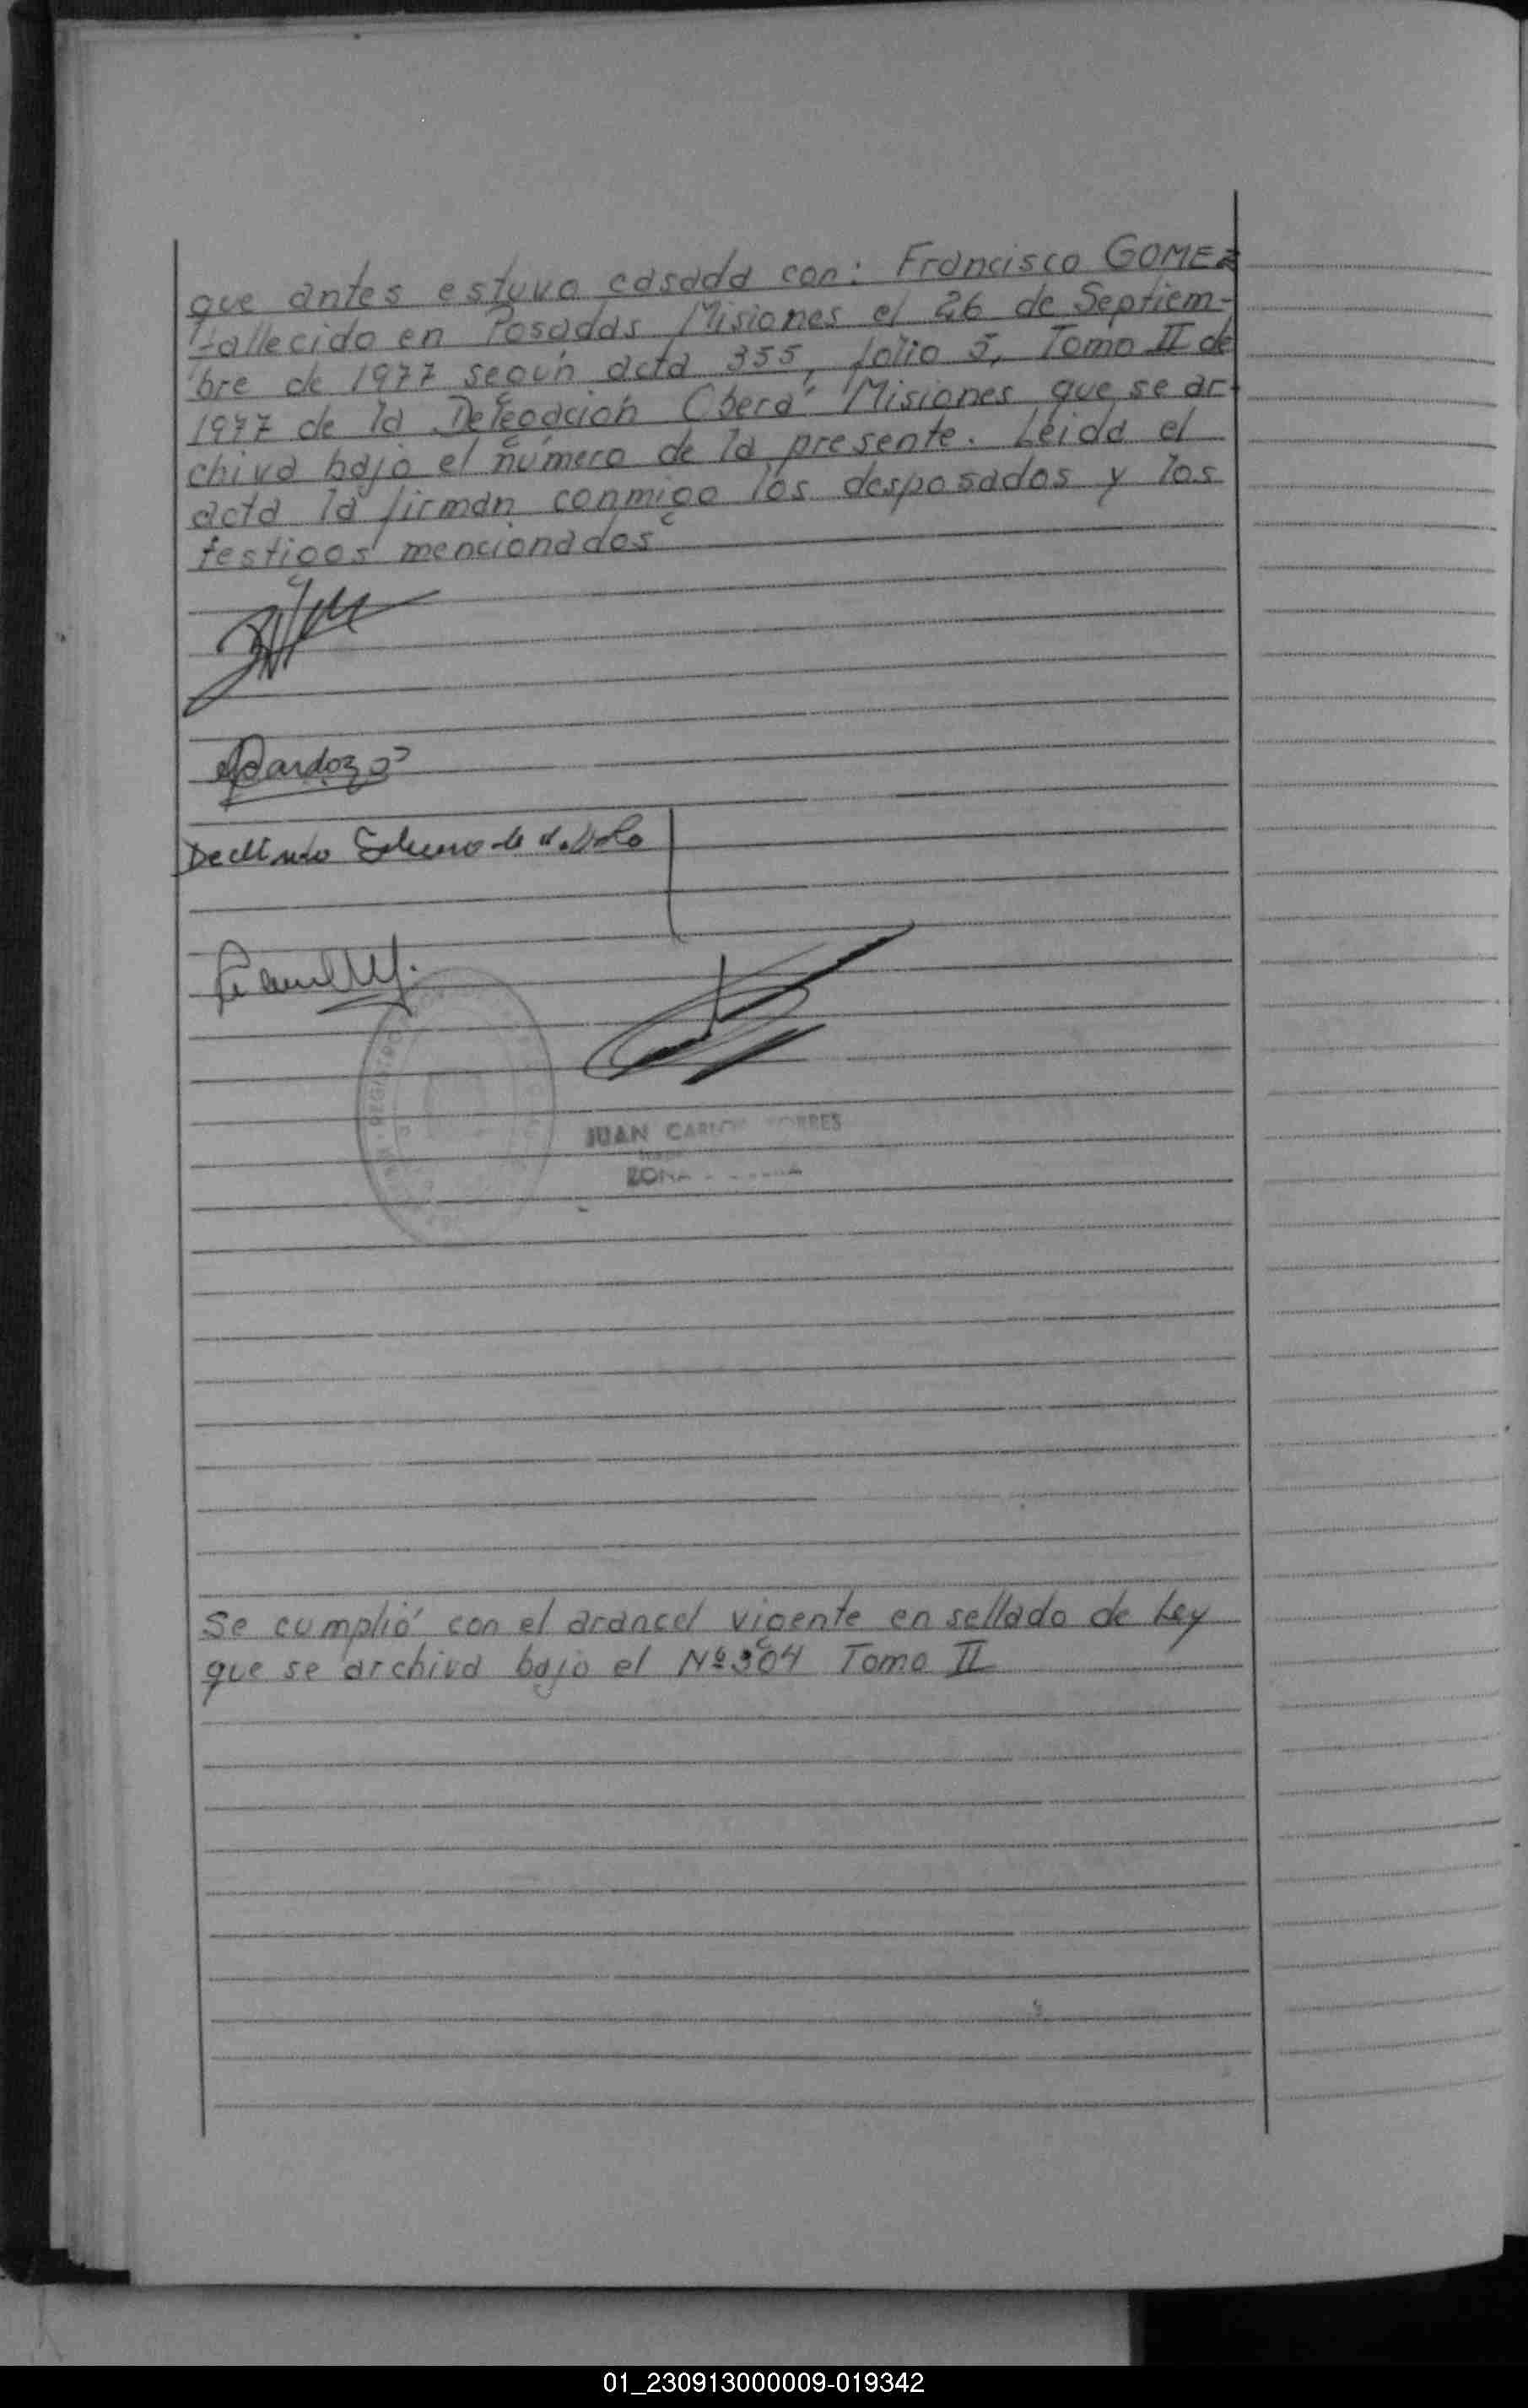 que antes estuvo casada con: Francisco GOMEZ
fallecido en Posadas Misiones el 26 de Septiem-
bre de 1977 según acta 355, folio 5, Tomo II de
1977 de la Delegación Oberá Misiones que se ar-
chiva bajo el número de la presente. Leida el
acta la firman conmigo los desposados y los
testigos mencionados
Cardozo
JUAN CARLOS TORRES
ZONA
Se cumplió con el arancel vigente en sellado de Ley
que se archiva bajo el Nº 304 Tomo II
01_230913000009-019342